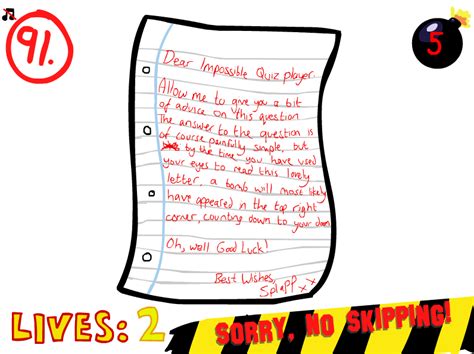 91.
5
Dear Impossible Quiz player
Allow me to give you a bit
of advice on this question
The answer to the question is
of course painfully simple, but
by the time you have used
your eyes to read this lovely
letter, a bomb will most likely
have appeared in the top right
corner, counting down to your doom
Oh, well Good Luck!
Best Wishes,
SplaPP x x
LIVES: 2
SORRY, NO SKIPPING!